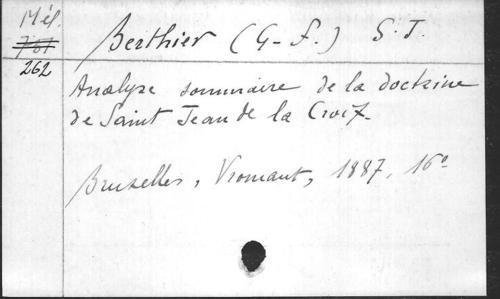 Mél.
761
262
Berthier (G-F.) S.J.
Analyse sommaire de la doctrine
de Saint Jean de la Croix.
Bruxelles, Vromant, 1887, 16°